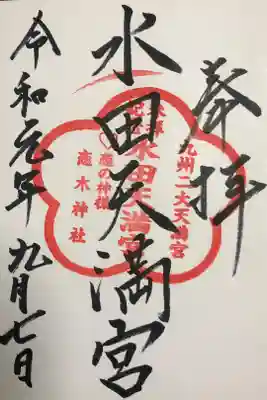 奉拝
水田天満宮
令和元年九月七日
九州二大天満宮
水田天満宮
恋の神様
恋木神社